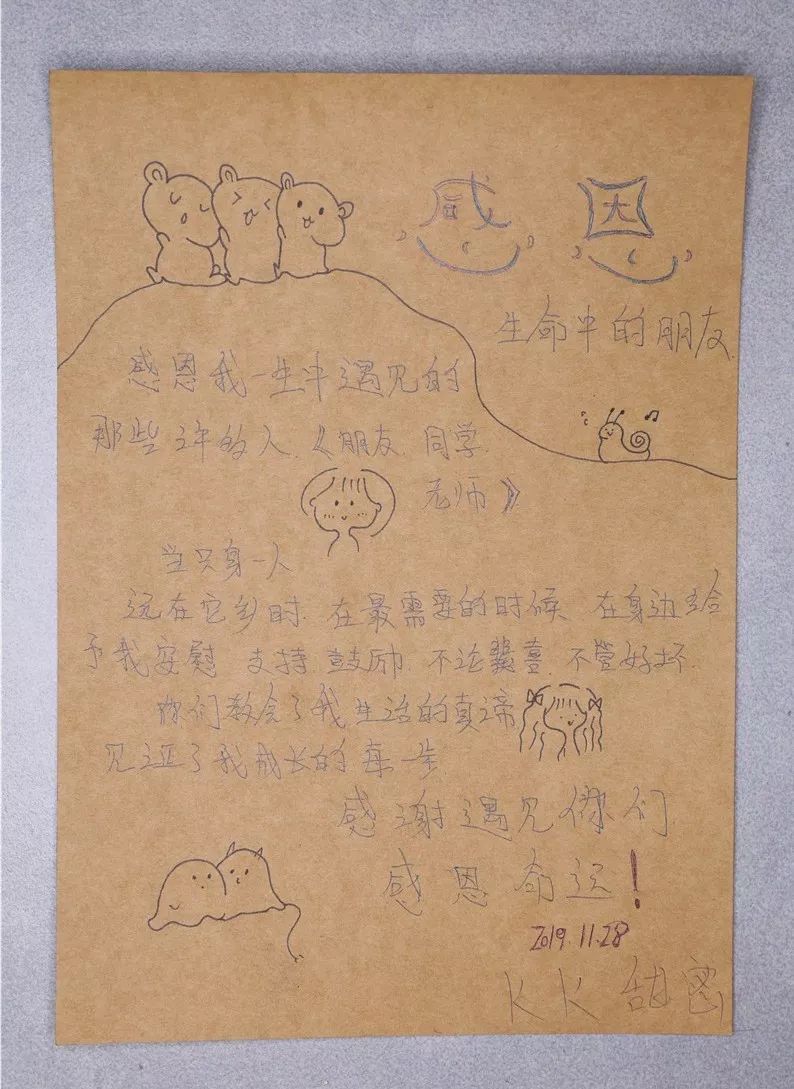 感恩
生命中的朋友
感恩我一生中遇见的
那些许的人《朋友 同学
老师》
当只身一人
远在它乡时 在最需要的时候 在身边给
予我安慰 支持 鼓励 不论 喜 不管好坏
你们教会了我生活的真谛
见证了我成长的每一步
感谢遇见你们
感恩命运!
2019.11.28
KK 甜蜜